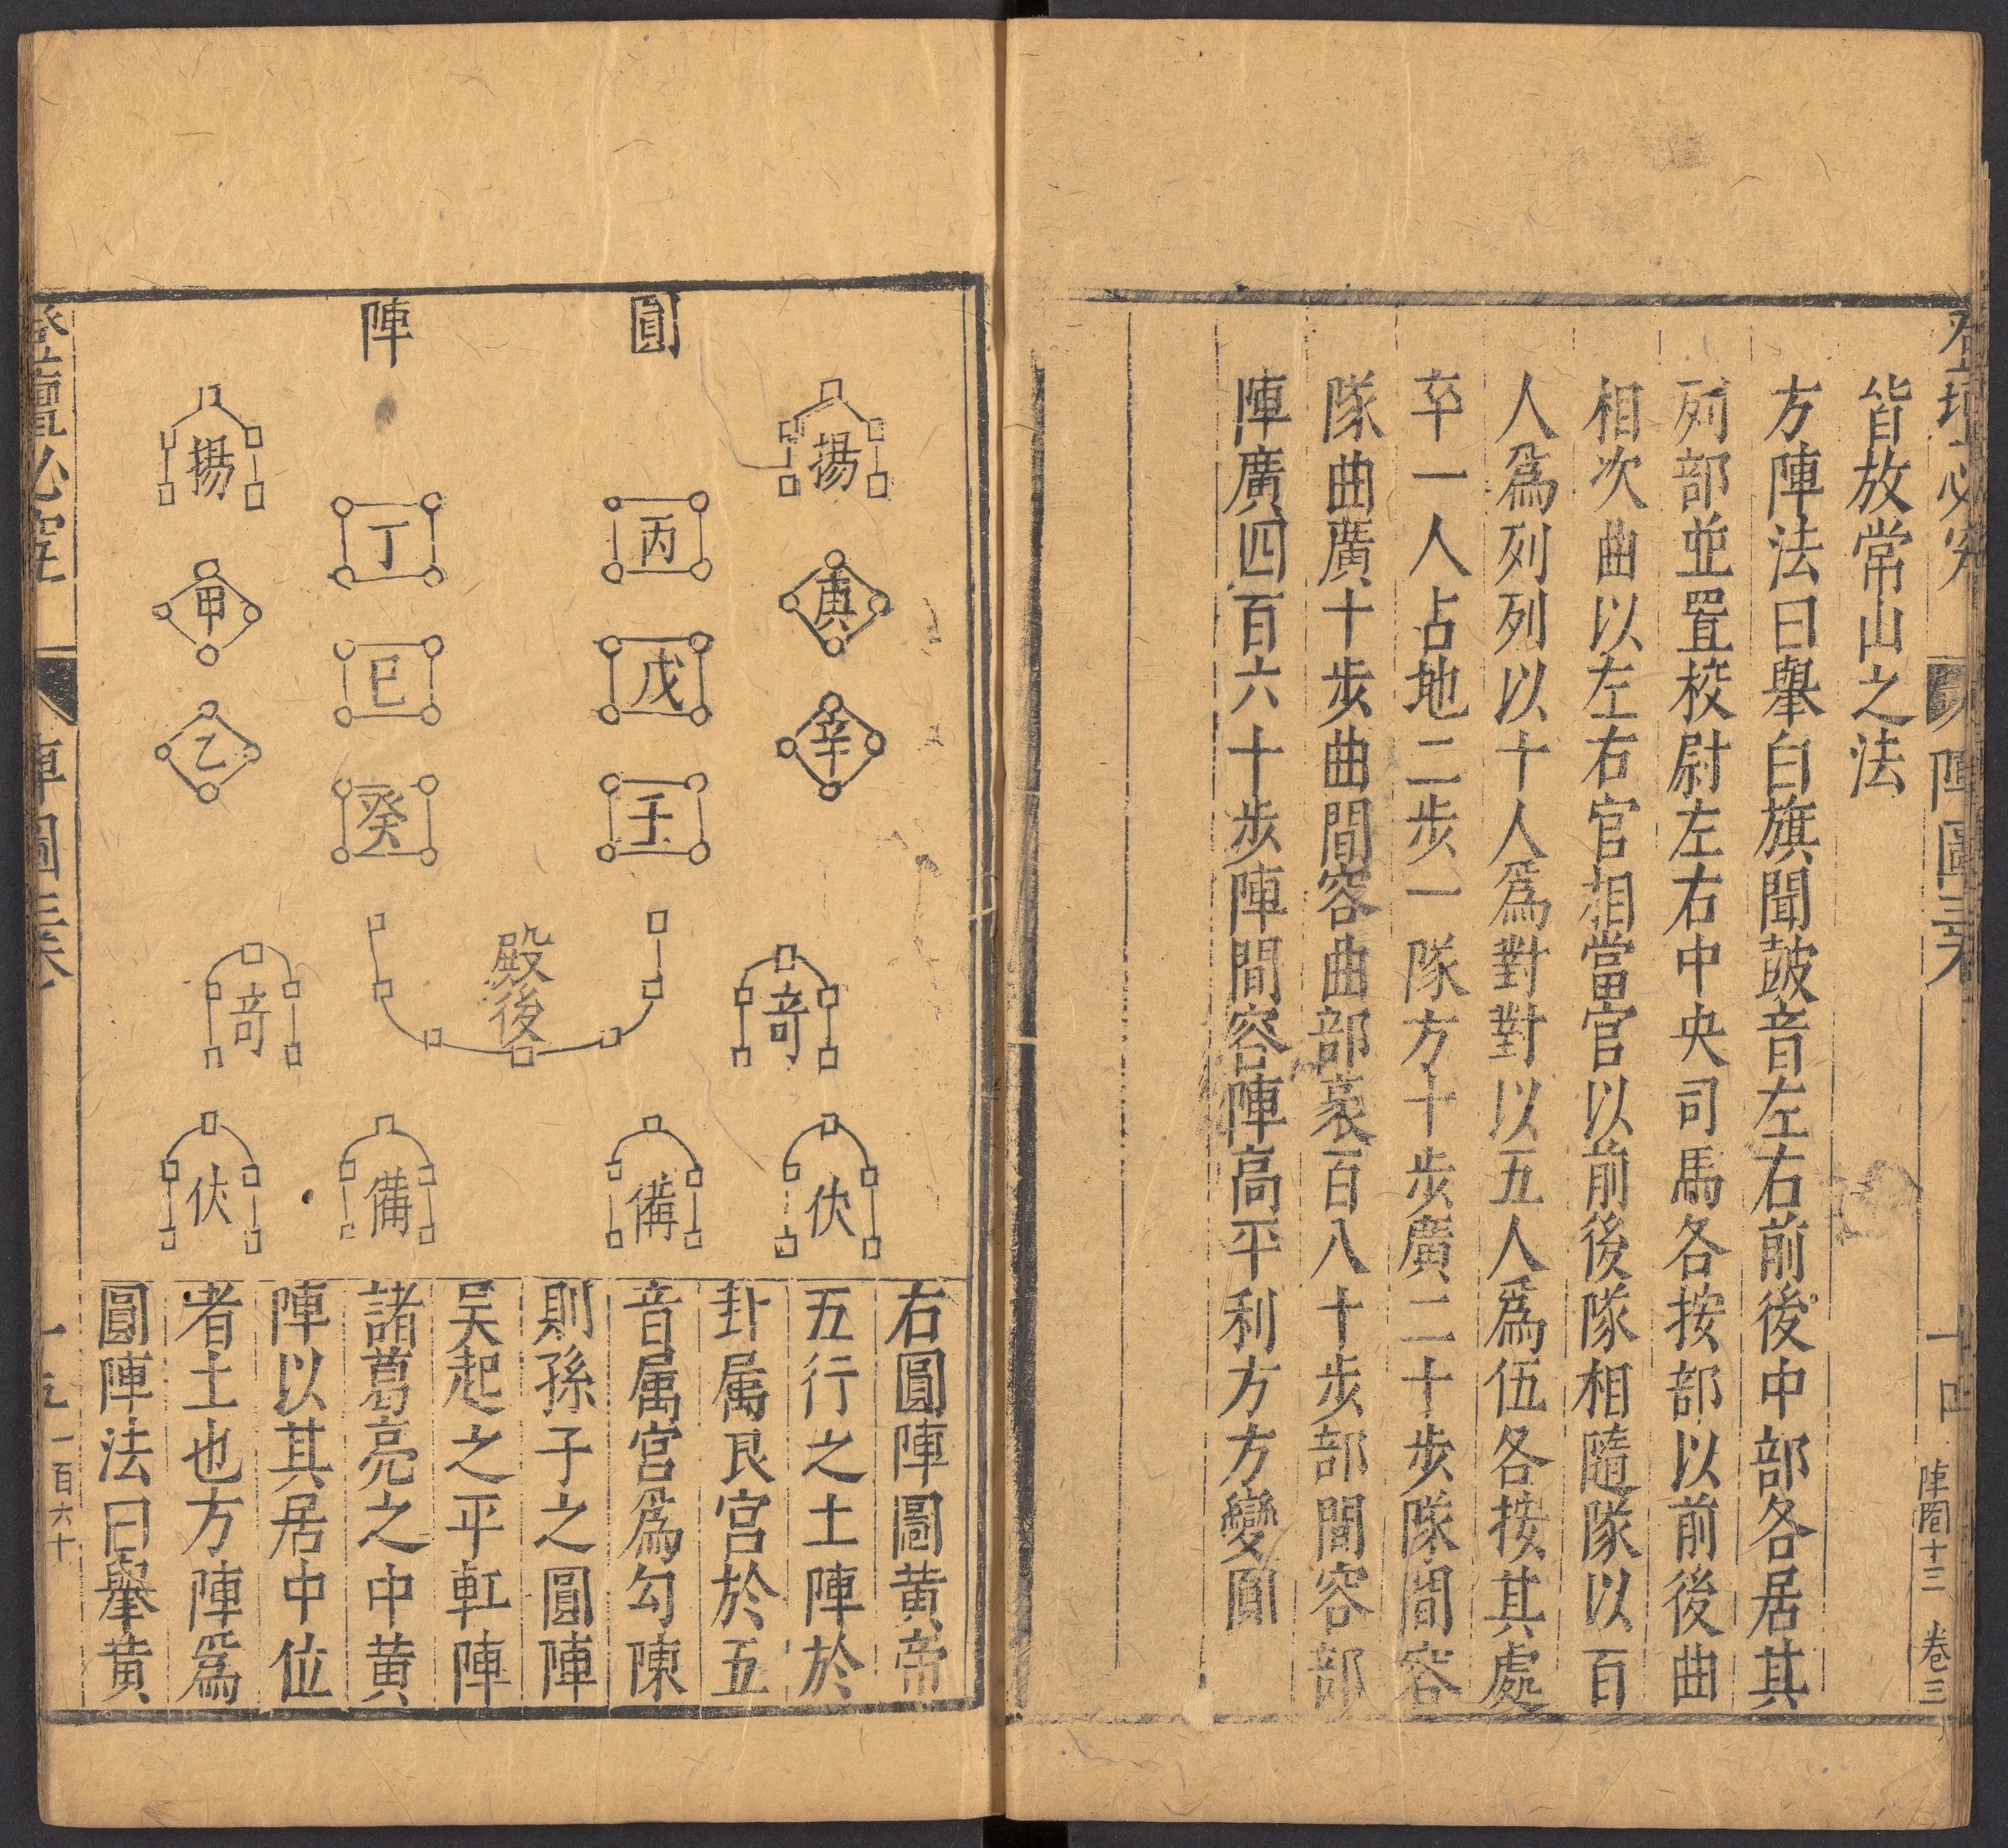 登壇必究
陣圖三卷
十四
陣圖十三 卷三
皆放常山之法
方陣法曰舉白旗聞皷音左右前後中部各居其
列部並置校尉左右中央司馬各按部以前後曲
相次曲以左右官相當官以前後隊相隨隊以百
人爲列列以十人爲對對以五人爲伍各按其處
卒一人占地二步一隊方十步廣二十步隊間容
隊曲廣十步曲間容曲部袤百八十步部間容部
陣廣四百六十步陣間容陣高平利方方變圓
圓
陣
揚
庚
辛
丙
戊
壬
丁
巳
癸
揚
甲
乙
奇
殿後
奇
伏
備
備
伏
右圓陣圖黃帝
五行之土陣於
卦属艮宮於五
音属宮爲勾陳
則孫子之圓陣
吴起之平軭陣
諸葛亮之中黃
陣以其居中位
者土也方陣爲
圓陣法曰舉黃
登壇必究
陣圖三卷
十五
一百六十